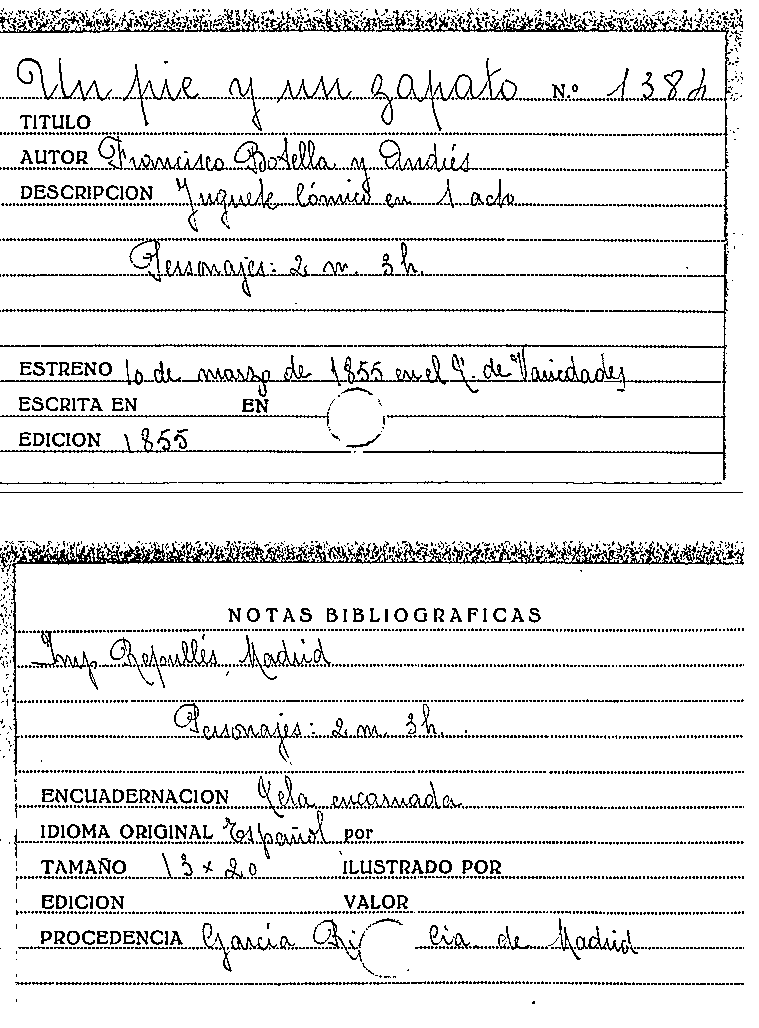 Un pie y un zapato N.º 1384
TITULO
AUTOR Francisco Botella y Andrés
DESCRIPCION Juguete Cómico en 1 acto
Personajes: 2 m. 3 h.
ESTRENO 10 de marzo de 1855 en el T. de Variedades
ESCRITA EN EN
EDICION 1855
NOTAS BIBLIOGRAFICAS
Imp Repullés, Madrid
Personajes: 2 m. 3 h.
ENCUADERNACION Tela encarnada
IDIOMA ORIGINAL Español por
TAMAÑO 13 x 20 ILUSTRADO POR
EDICION VALOR
PROCEDENCIA García Ri cia de Madrid